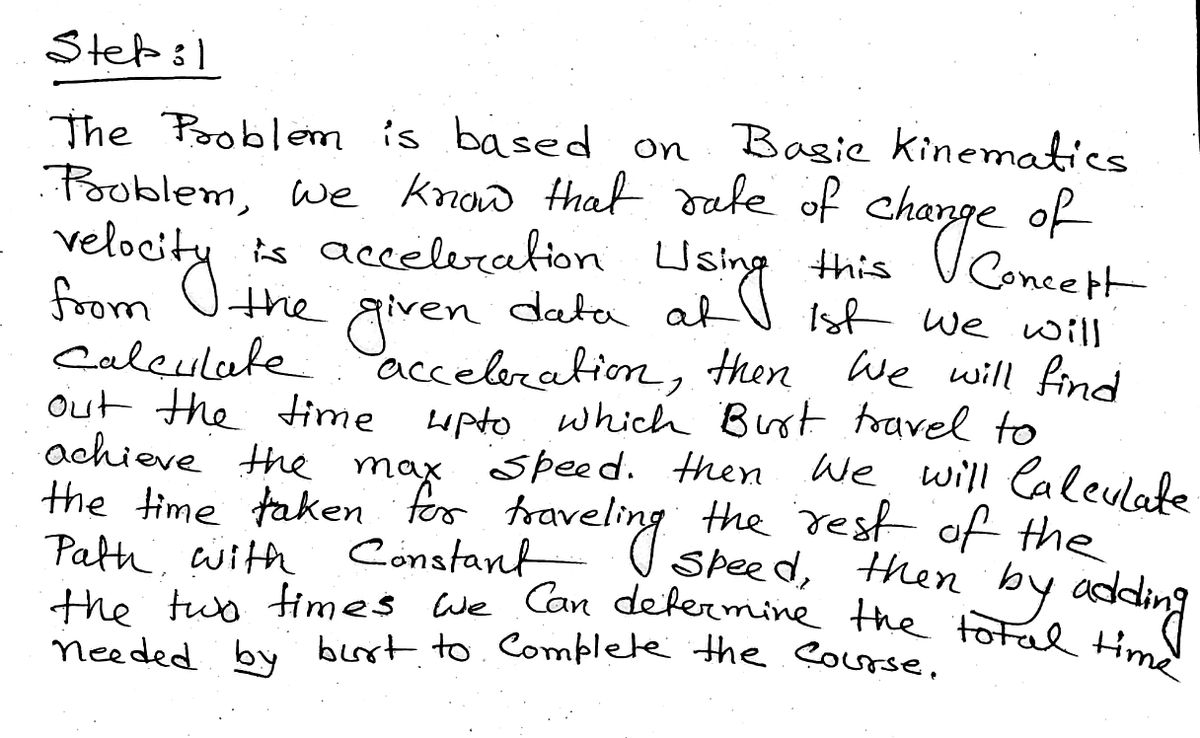 Step:1
The Problem is based on Basic Kinematics
Problem, we know that rate of change of
velocity is acceleration Using this Concept
from the given data at 1st we will
Calculate acceleration, then We will find
out the time upto which Burt travel to
achieve the max speed. then We will Calculate
the time taken for traveling the rest of the
Path, with Constant Speed, then by adding
the two times we Can determine the total time
needed by burt to Complete the Course.